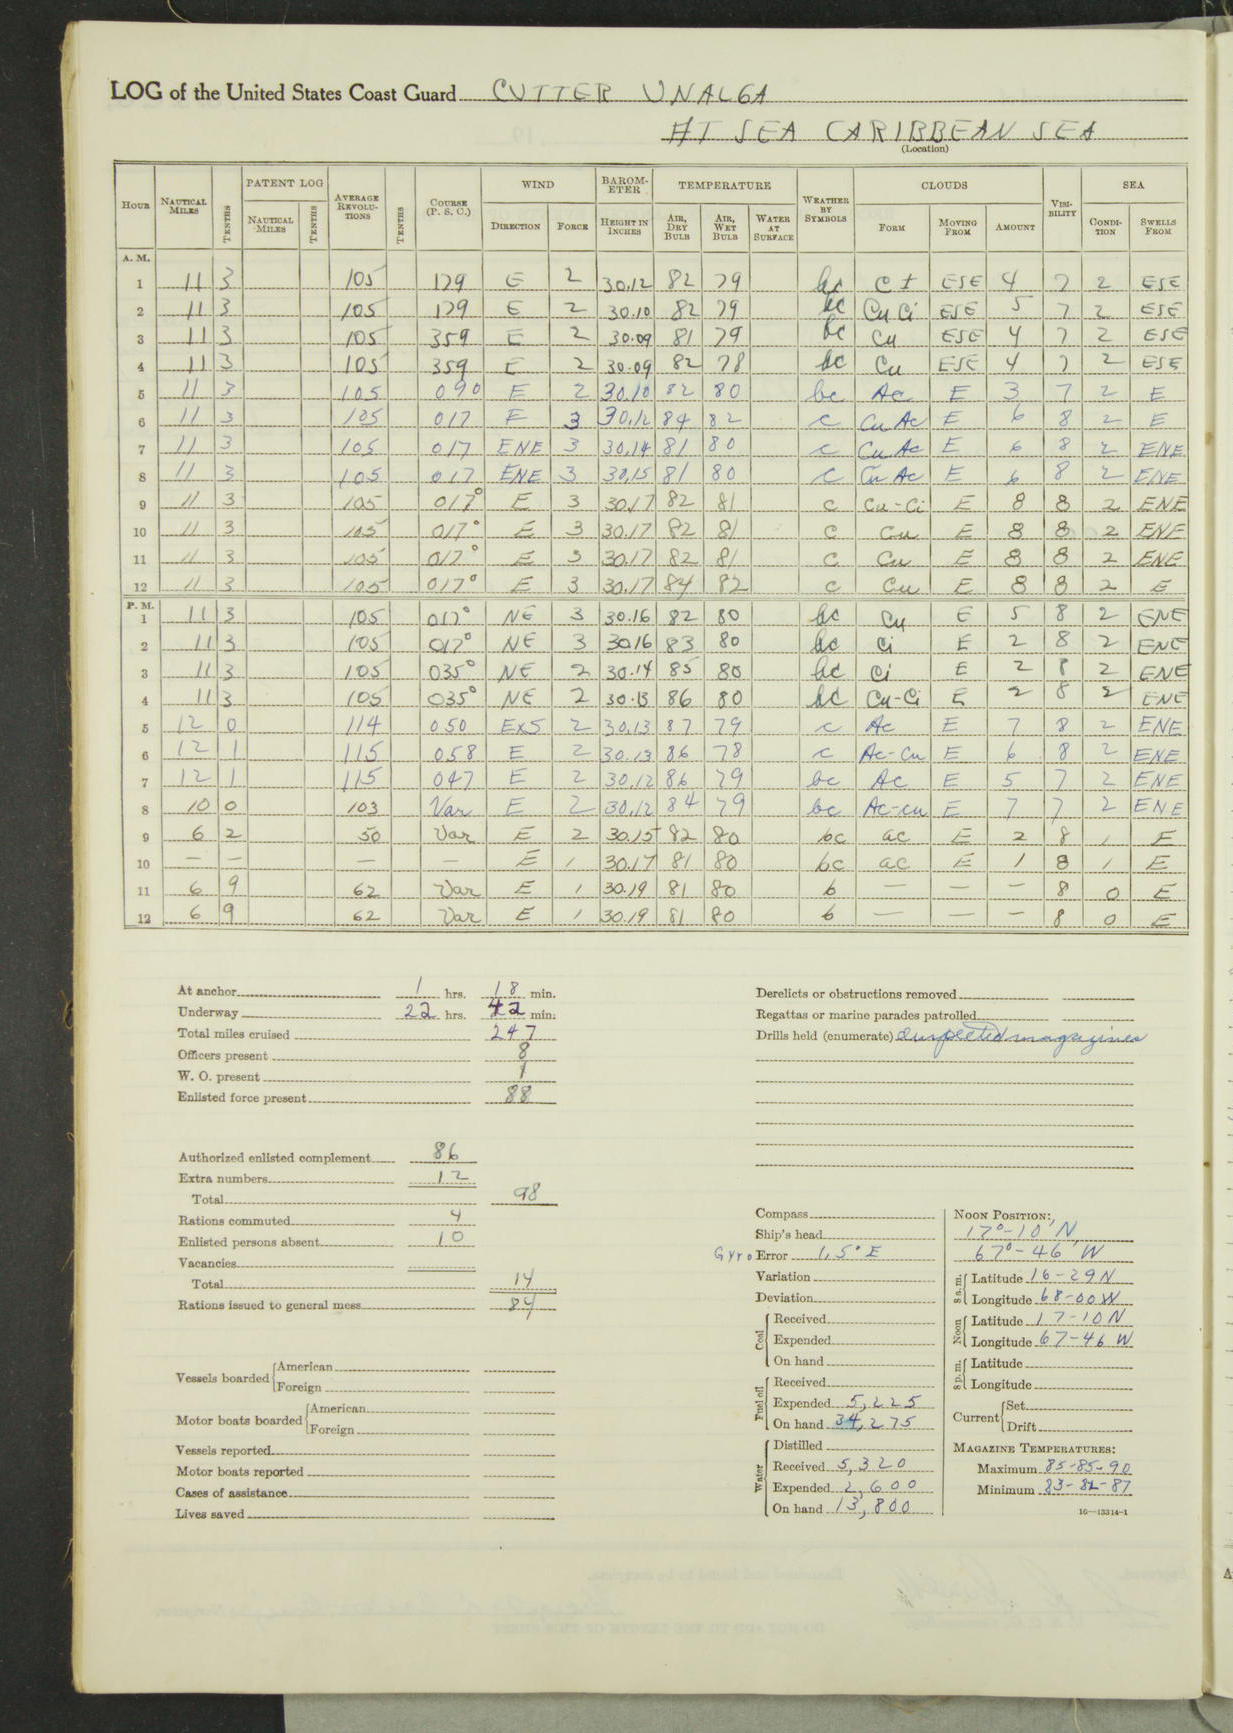 LOG of the United States Coast Guard CUTTER UNALGA
AT SEA CARIBBEAN SEA
(Location)
HOUR NAUTICAL MILES TENTHS PATENT LOG NAUTICAL MILES TENTHS AVERAGE REVOLUTIONS TENTHS COURSE (P. S. C.) WIND DIRECTION FORCE BAROMETER HEIGHT IN INCHES TEMPERATURE AIR, DRY BULB AIR, WET BULB WATER AT SURFACE WEATHER BY SYMBOLS CLOUDS FORM MOVING FROM AMOUNT VISIBILITY SEA CONDITION SWELLS FROM
A. M.
1 11 3 105 179 E 2 30.12 82 79 bc ESE 4 7 2 ESE
2 11 3 105 179 E 2 30.10 82 79 bc Cu Ci ESE 5 7 2 ESE
3 11 3 105 359 E 2 30.09 81 79 bc Cu ESE 4 7 2 ESE
4 11 3 105 359 E 2 30.09 82 78 bc Cu ESE 4 7 2 ESE
5 11 3 105 090 E 2 30.10 82 80 bc Ac E 3 7 2 E
6 11 3 105 017 E 3 30.12 84 82 c Cu Ac E 6 8 2 E
7 11 3 105 017 ENE 3 30.14 81 80 c Cu Ac E 6 8 2 ENE
8 11 3 105 017 ENE 3 30.15 81 80 c Cu Ac E 6 8 2 ENE
9 11 3 105 017° E 3 30.17 82 81 c Cu-Ci E 8 8 2 ENE
10 11 3 105 017° E 3 30.17 82 81 c Cu E 8 8 2 ENE
11 11 3 105 017° E 3 30.17 82 81 c Cu E 8 8 2 ENE
12 11 3 105 017° E 3 30.17 84 82 c Cu E 8 8 2 E
P. M.
1 11 3 105 017° NE 3 30.16 82 80 bc Cu E 5 8 2 ENE
2 11 3 105 017° NE 3 30.16 83 80 bc Ci E 2 8 2 ENE
3 11 3 105 035° NE 2 30.14 85 80 bc Ci E 2 8 2 ENE
4 11 3 105 035° NE 2 30.13 86 80 bc Cu-Ci E 2 8 2 ENE
5 12 0 114 050 ExS 2 30.13 87 79 c Ac E 7 8 2 ENE
6 12 1 115 058 E 2 30.13 86 78 c Ac-Cu E 6 8 2 ENE
7 12 1 115 047 E 2 30.12 86 79 bc Ac E 5 7 2 ENE
8 10 0 103 Var E 2 30.12 84 79 bc Ac-cu E 7 7 2 ENE
9 6 2 50 Var E 2 30.15 82 80 bc ac E 2 8 1 E
10 — — — — E 1 30.17 81 80 bc ac E 1 8 1 E
11 6 9 62 Var E 1 30.19 81 80 b — — — 8 0 E
12 6 9 62 Var E 1 30.19 81 80 b — — — 8 0 E
At anchor 1 hrs. 18 min.
Underway 22 hrs. 42 min.
Total miles cruised 247
Officers present 8
W. O. present 1
Enlisted force present 88
Authorized enlisted complement 86
Extra numbers 12
Total 98
Rations commuted 4
Enlisted persons absent 10
Vacancies
Total 14
Rations issued to general mess 84
Vessels boarded American
Foreign
Motor boats boarded American
Foreign
Vessels reported
Motor boats reported
Cases of assistance
Lives saved
Derelicts or obstructions removed
Regattas or marine parades patrolled
Drills held (enumerate) Inspected magazines
Compass
Ship's head
Gyro Error 1.5° E
Variation
Deviation
Coal Received
Expended
On hand
Fuel oil Received
Expended 5,225
On hand 34,275
Water Distilled
Received 5,320
Expended 2,600
On hand 13,800
NOON POSITION:
17°-10' N
67°-46' W
8 a.m. Latitude 16-29 N
Longitude 68-00 W
Noon Latitude 17-10 N
Longitude 67-46 W
8 p.m. Latitude
Longitude
Current Set
Drift
MAGAZINE TEMPERATURES:
Maximum 85-85-90
Minimum 83-82-87
16—13314-1